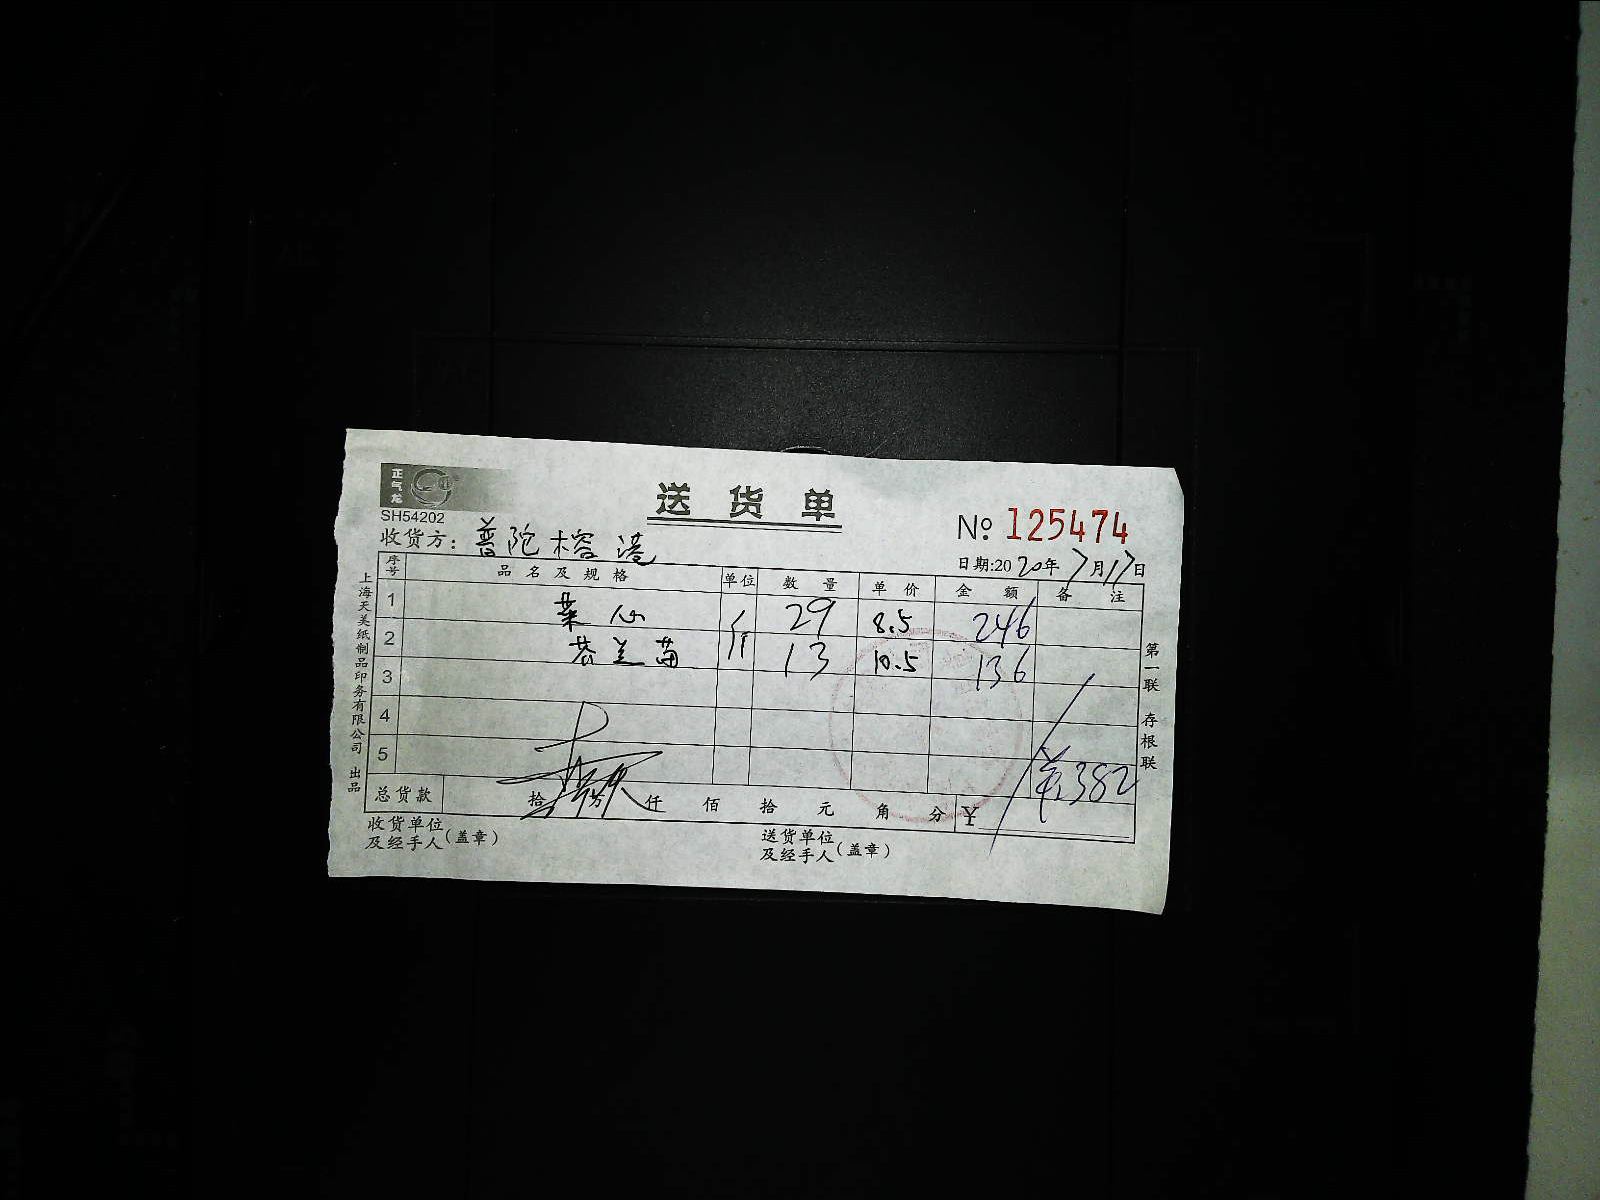 正气龙
SH54202
送货单
№ 125474
收货方: 普陀榕港
日期:2020年7月17日
序号 品名及规格 单位 数量 单价 金额 备注
1 菜心 斤 29 8.5 246
2 芥兰苗 13 10.5 136
3
4
5
382
总货款 拾 万 仟 佰 拾 元 角 分 ¥
收货单位及经手人(盖章)
送货单位及经手人(盖章)
上海天美纸制品印务有限公司 出品
第一联 存根联